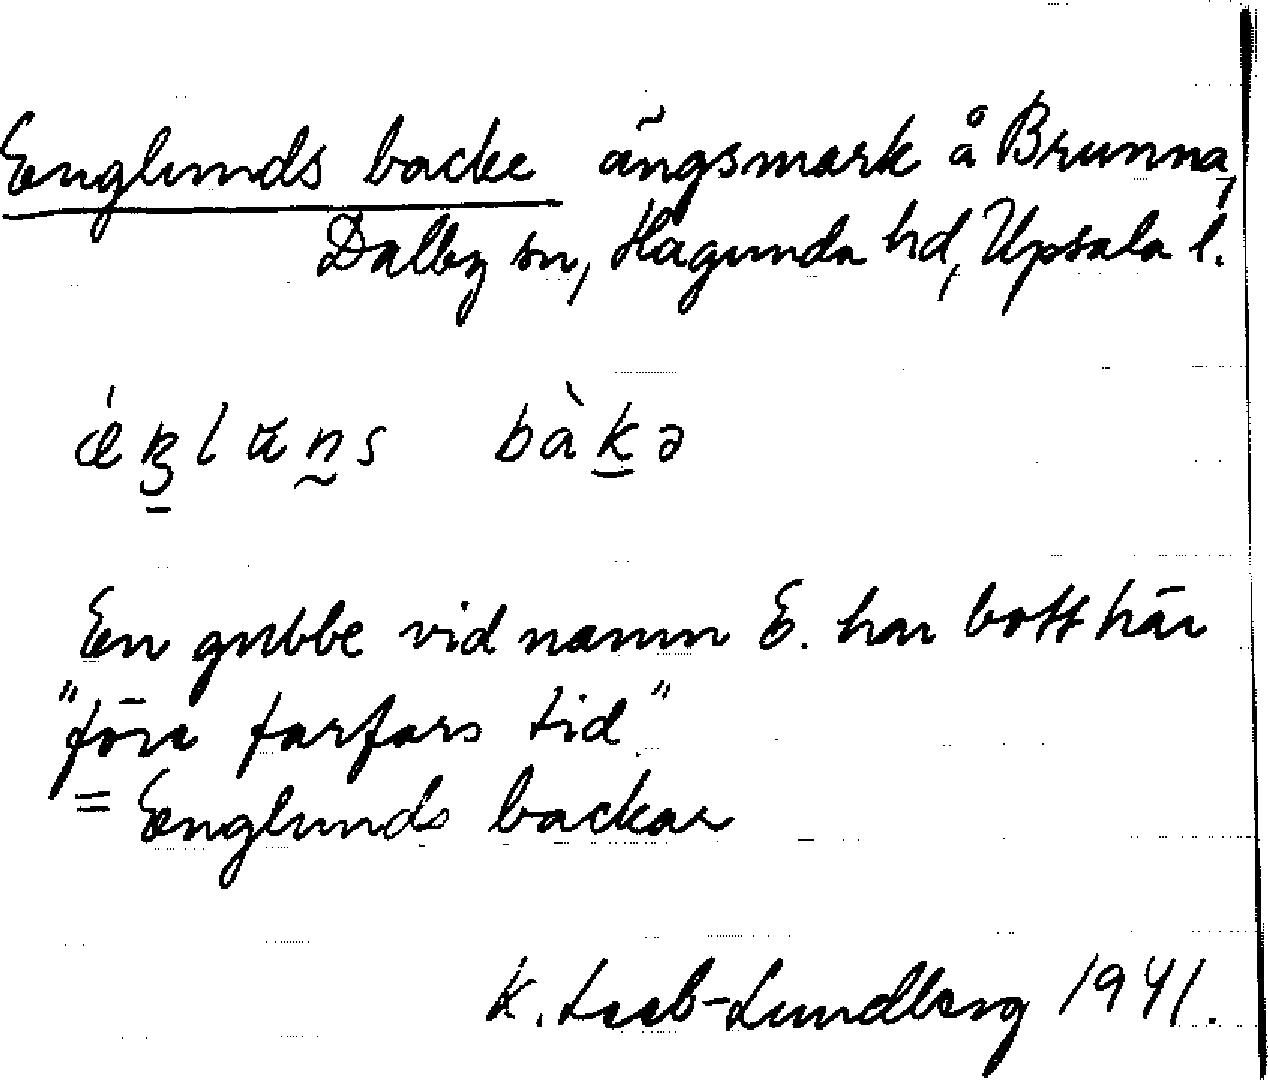 Englunds backe ängsmark å Brunna,
Dalby sn, Hagunda hd, Upsala l.
bàkə
En gubbe vid namn E. har bott här
"före farfars tid"
= Englunds backar
K. Leeb-Lundberg 1941.